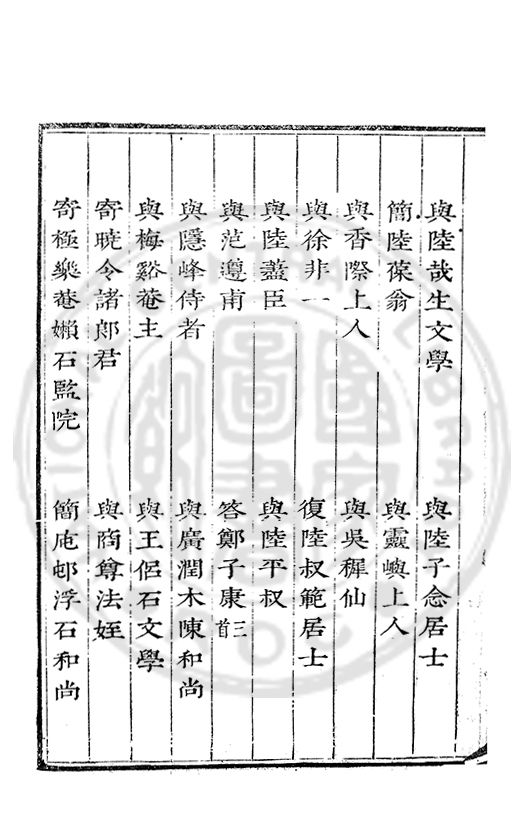 與陸哉生文學　與陸子念居士
簡陸葆翁　與靈嶼上人
與香際上人　與吳穉仙
與徐非一　復陸叔範居士
與陸藎臣　與陸平叔
與范遵甫　答鄭子康三首
與隱峰侍者　與廣潤木陳和尚
與梅谿菴主　與王侶石文學
寄曉令諸郎君　與商尊法姪
寄極樂菴嬾石監院　簡庉邨浮石和尚